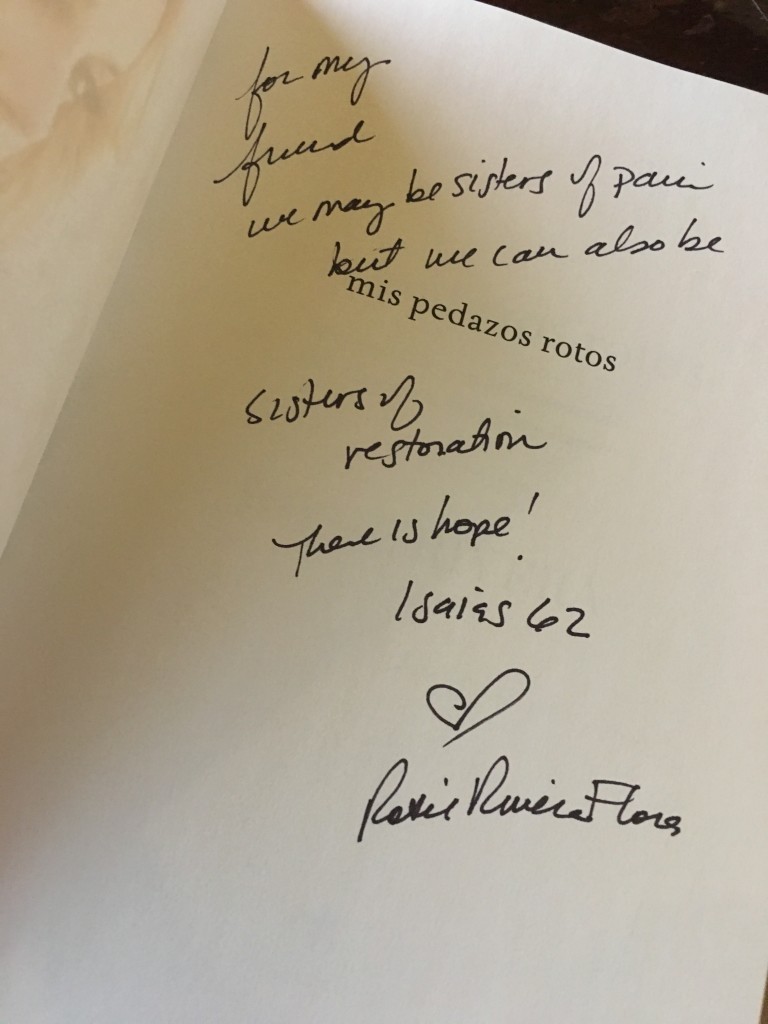 for my
friend
we may be sisters of pain
but we can also be
mis pedazos rotos
sisters of
restoration
There is hope!
Isaias 62
Rosie Rivera Flores